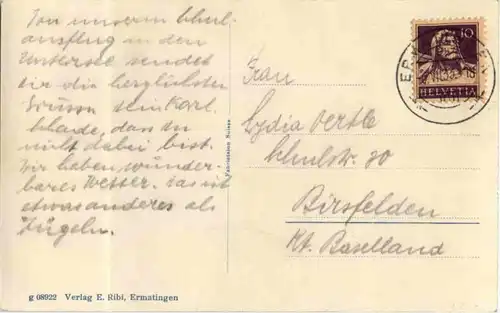 Von unserm Schul-
ausflug an den
Untersee sendet
dir die herzlichsten
Grüsse dein Karl.
Schade, dass du
nicht dabei bist.
Wir haben wunder-
bares Wetter. Das ist
etwas anderes als
Büg eln.
Frau
Lydia Oertle
Schulstr. 30
Birsfelden
Kt. Baselland
10
HELVETIA
g 08922 Verlag E. Ribi, Ermatingen